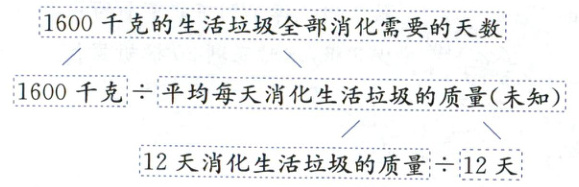 1600 千克的生活垃圾全部消化需要的天数
1600 千克÷平均每天消化生活垃圾的质量(未知)
12 天消化生活垃圾的质量÷12 天